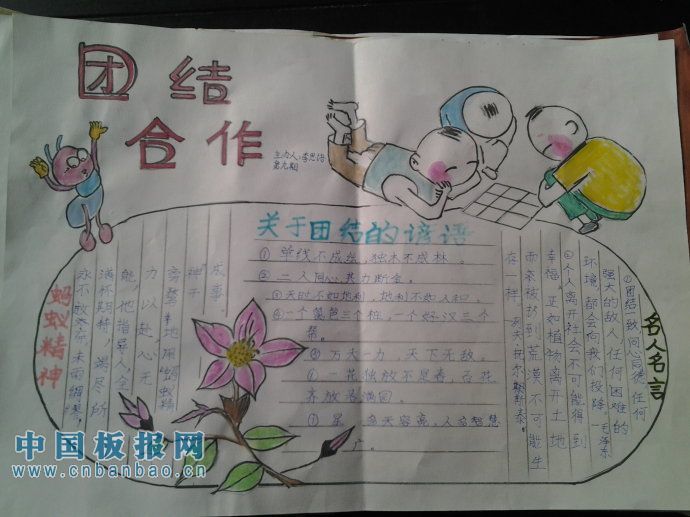 团结
合作
主办人:李思洁
第九期
关于团结的谚语
①单线不成丝,独木不成林。
②二人同心,其力断金。
③天时不如地利,地利不如人和。
④一个篱笆三个桩,一个好汉三个
帮。
⑤万夫一力,天下无敌。
⑥一花独放不是春,百花
齐放春满园。
⑦星多天空亮,人多智慧
广。
蚂蚁精神
成事,
神子
力以赴,心无
能,他指导人,全
满怀期待,竭尽所
永不放弃,未雨绸缪,
名人名言
①团结一致,同心同德,任何
强大的敌人,任何困难的
环境,都会向我们投降—毛泽东
②个人离开社会不可能得到
幸福,正如植物离开土地
而被抛到荒漠不可能生
存一样—列夫·托尔斯泰。
中国板报网
www.cnbanbao.cn